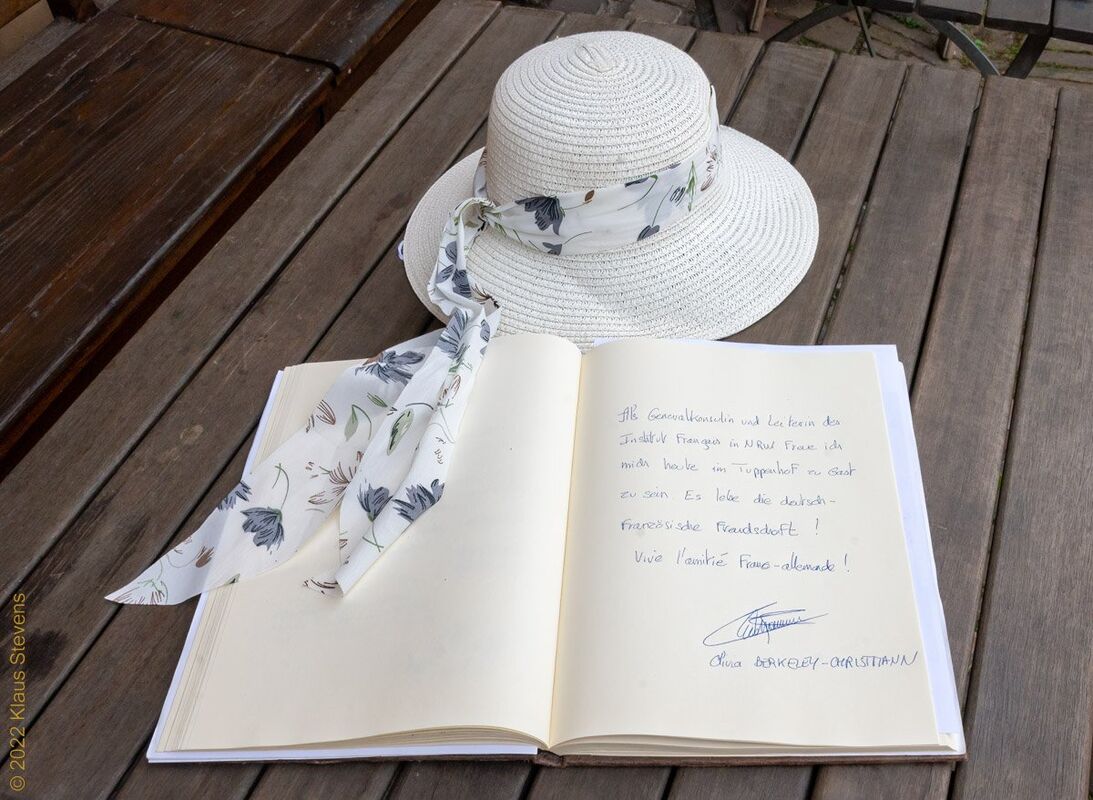 Als Generalkonsulin und Leiterin des
Institut Français in NRW freue ich
mich heute im Tuppenhof zu Gast
zu sein. Es lebe die deutsch-
französische Freundschaft !
Vive l'amitié franco-allemande !
Olivia BERKELEY-CHRISTMANN
© 2022 Klaus Stevens